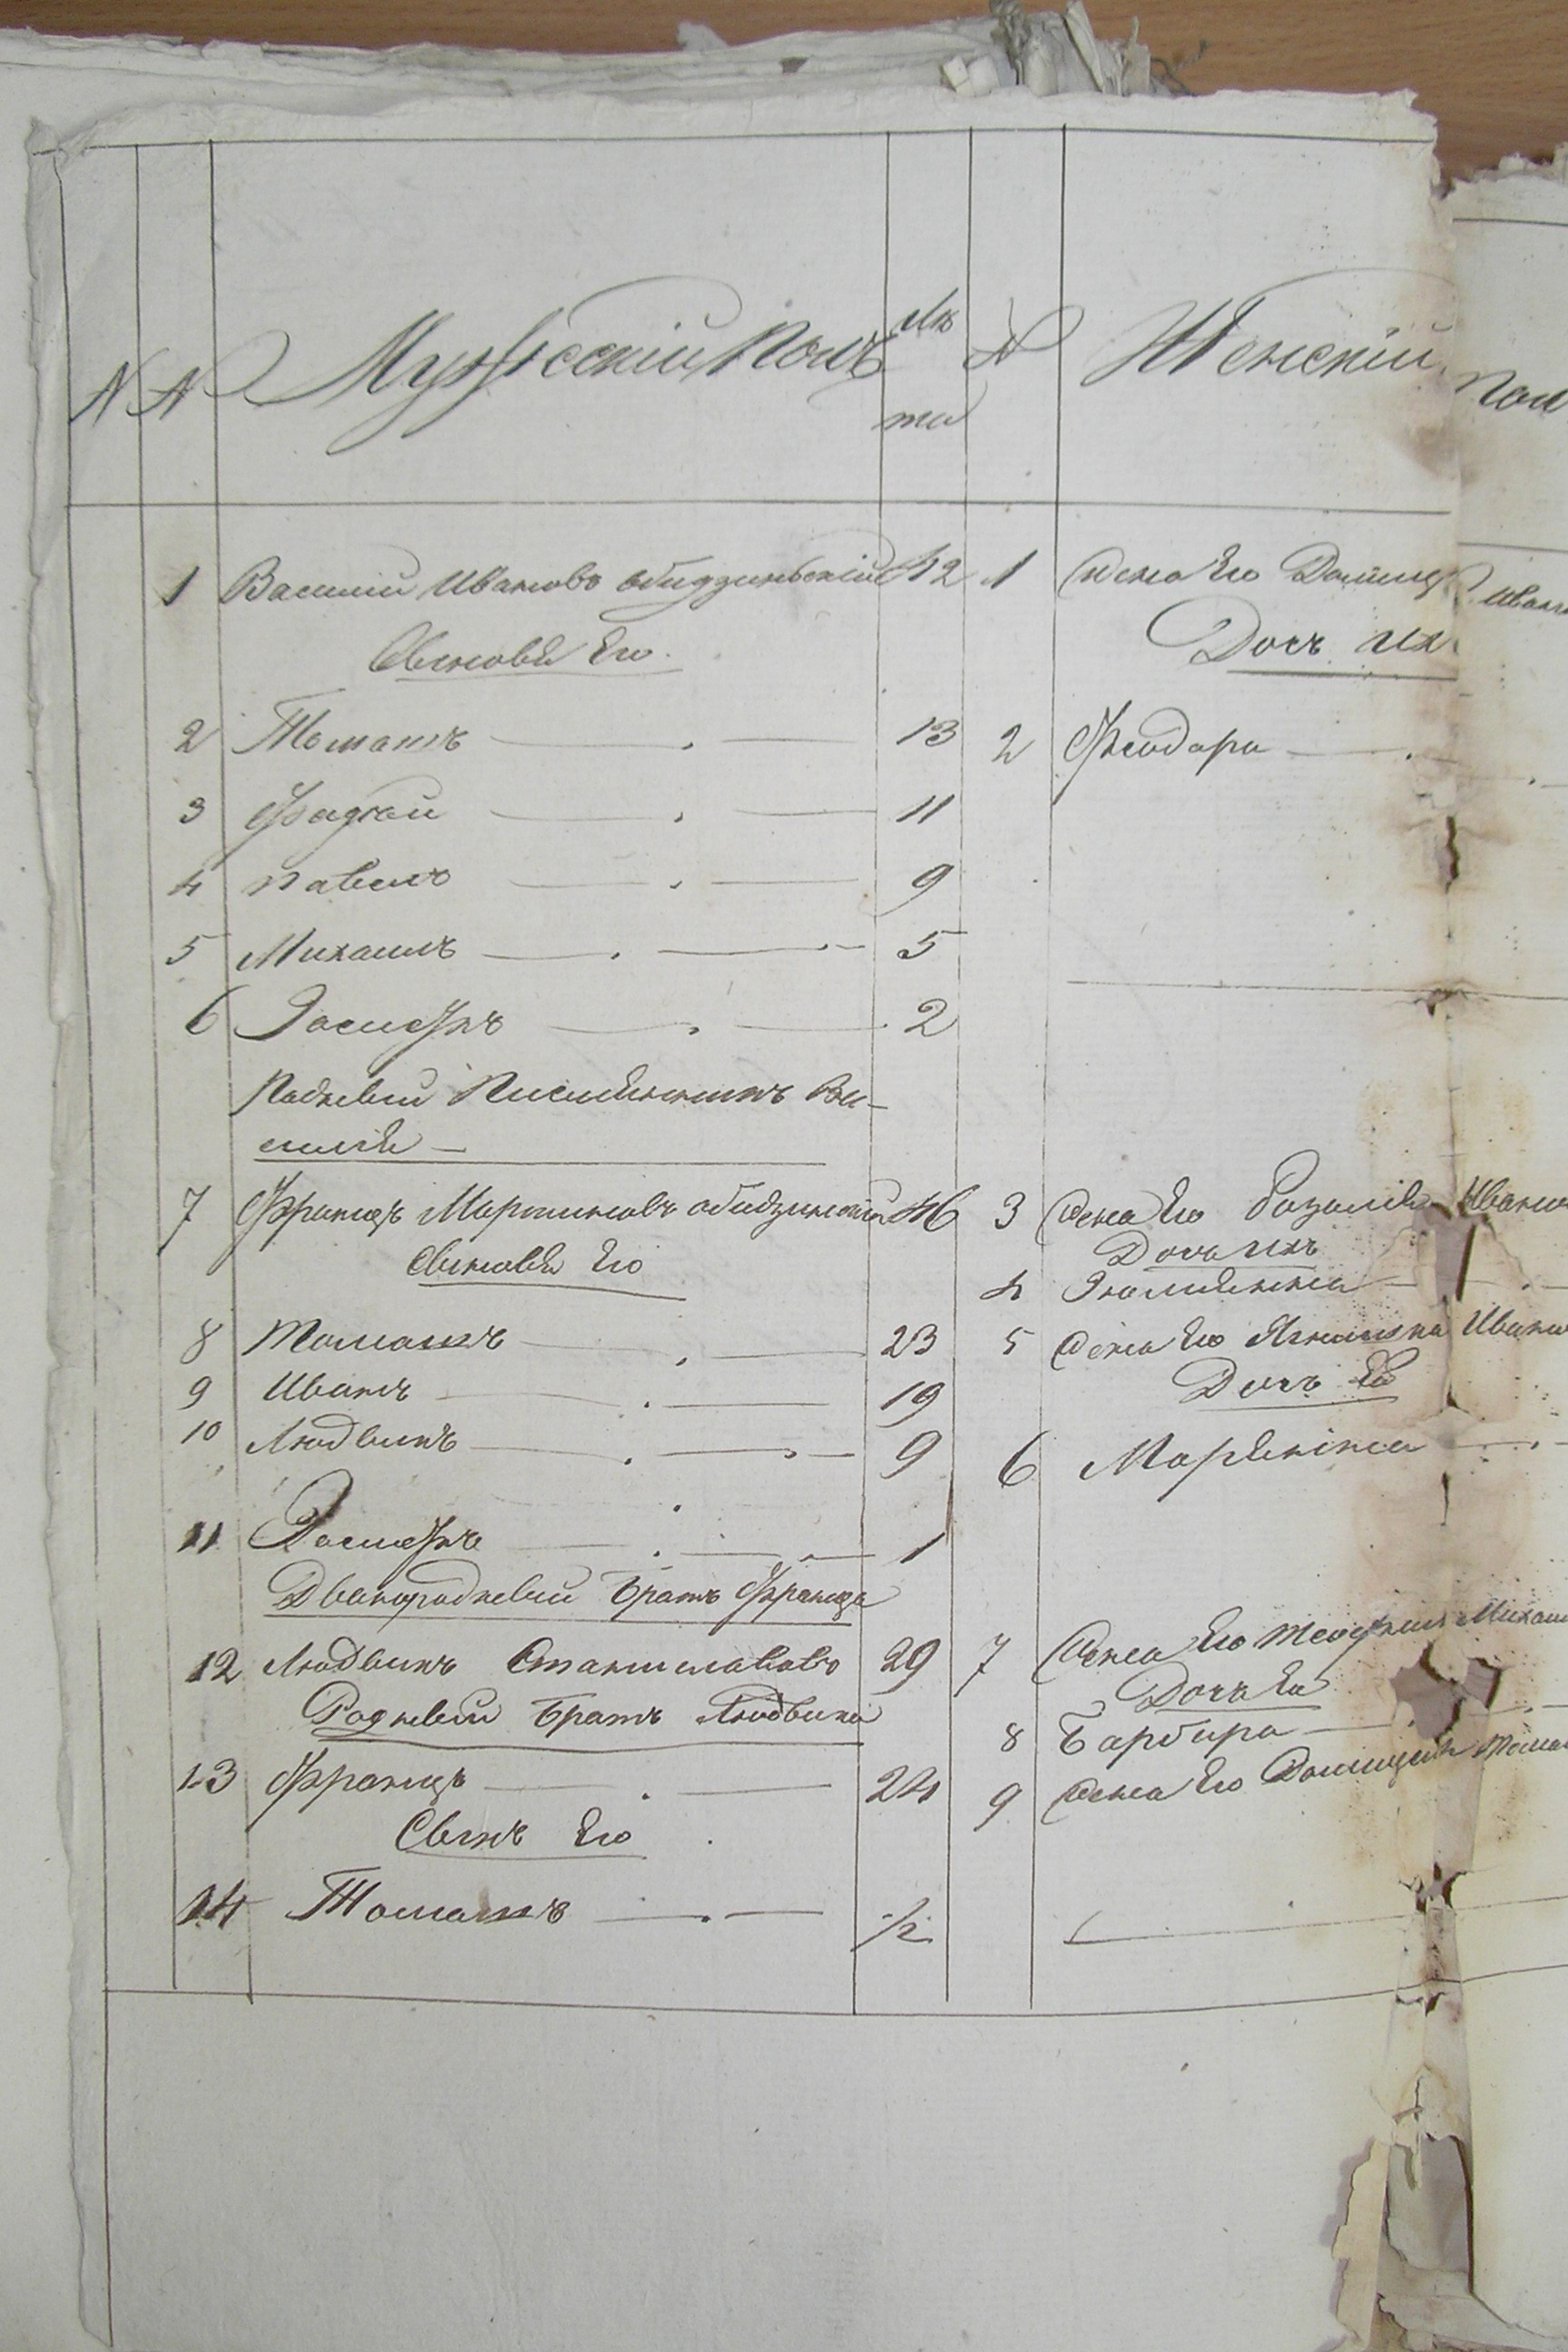 N N Мужескій полъ лѣ та N Женскій пол
1 Василій Ивановъ Абидзинскій 42 1 Жена Его Доминц Иван
Сыновья Его. Дочь ихъ
2 Томашъ 13 2 Феодора
3 Фадѣй 11
4 Павелъ 9
5 Михаилъ 5
6 Іосифъ 2
Родный Племянникъ Ва-
силія
7 Францъ Мартиновъ Абидзинскій 46 3 Жена Его Розалія Ивано
Сыновья Его Дочь ихъ
4
8 Томашъ 23 5 Жена Его Ивано
9 Иванъ 19 Дочь Ея
10 Людвикъ 9 6 Маріянна
11 Іосифъ 1
Двоюродный Братъ Франца
12 Людвикъ Станиславовъ 29 7 Жена Его Михаи
Родный Братъ Людвика Дочь Ея
8 Барбара
13 Францъ 24 9 Жена Его Томаш
Сынъ Его
14 Томашъ 1/2